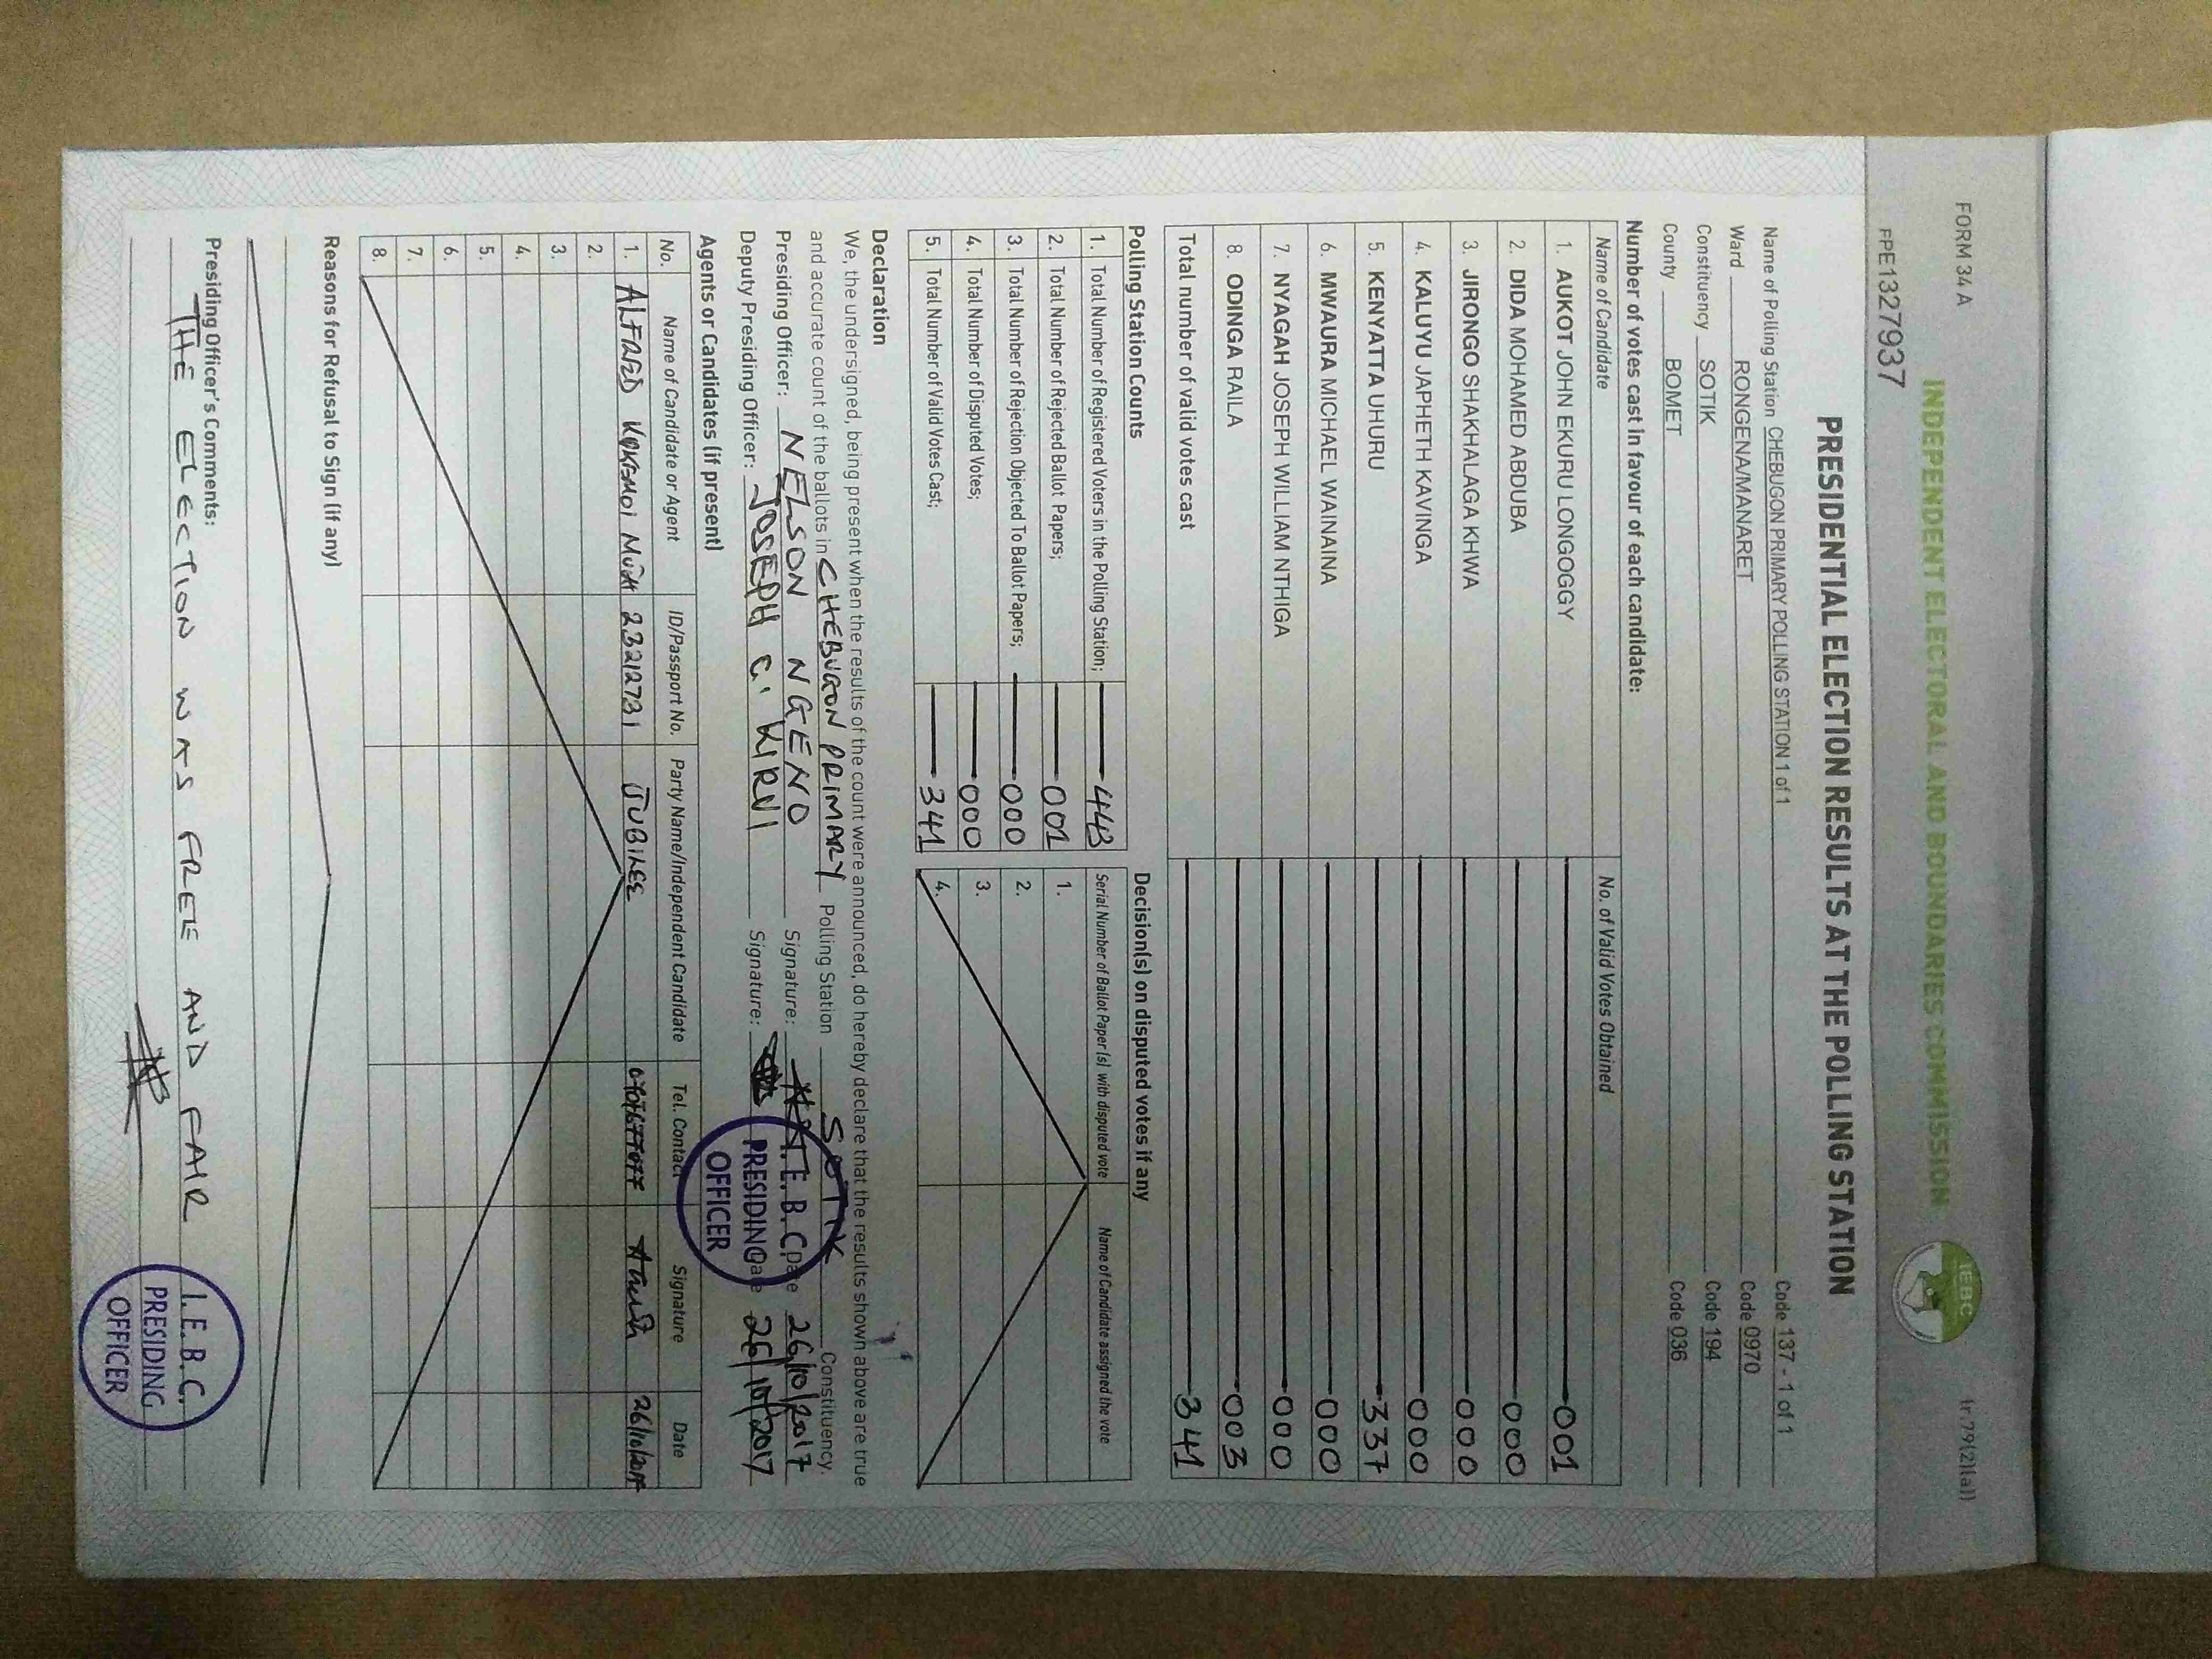 FORM 34 A
(r.79(2)(a))
INDEPENDENT ELECTORAL AND BOUNDARIES COMMISSION
IEBC
FPE1327937
PRESIDENTIAL ELECTION RESULTS AT THE POLLING STATION
Name of Polling Station CHEBUGON PRIMARY POLLING STATION 1 of 1 Code 137 - 1 of 1
Ward RONGENA/MANARET Code 0970
Constituency SOTIK Code 194
County BOMET Code 036
Number of votes cast in favour of each candidate:
Name of Candidate No. of Valid Votes Obtained
1. AUKOT JOHN EKURU LONGOGGY 001
2. DIDA MOHAMED ABDUBA 000
3. JIRONGO SHAKHALAGA KHWA 000
4. KALUYU JAPHETH KAVINGA 000
5. KENYATTA UHURU 337
6. MWAURA MICHAEL WAINAINA 000
7. NYAGAH JOSEPH WILLIAM NTHIGA 000
8. ODINGA RAILA 003
Total number of valid votes cast 341
Polling Station Counts
1. Total Number of Registered Voters in the Polling Station; 443
2. Total Number of Rejected Ballot Papers; 001
3. Total Number of Rejection Objected To Ballot Papers; 000
4. Total Number of Disputed Votes; 000
5. Total Number of Valid Votes Cast; 341
Decision(s) on disputed votes if any
Serial Number of Ballot Paper (s) with disputed vote Name of Candidate assigned the vote
1.
2.
3.
4.
Declaration
We, the undersigned, being present when the results of the count were announced, do hereby declare that the results shown above are true
and accurate count of the ballots in CHEBUGON PRIMARY Polling Station SOTIK Constituency.
Presiding Officer: NELSON NGENO Signature: Date 26/10/2017
Deputy Presiding Officer: JOSEPH C. KIRUI Signature: Date 26/10/2017
I.E.B.C.
PRESIDING
OFFICER
Agents or Candidates (if present)
No. Name of Candidate or Agent ID/Passport No. Party Name/Independent Candidate Tel. Contact Signature Date
1. ALFRED 23212731 JUBILEE 26/10/2017
2.
3.
4.
5.
6.
7.
8.
Reasons for Refusal to Sign (if any)
Presiding Officer's Comments:
THE ELECTION WAS FREE AND FAIR
I.E.B.C.
PRESIDING
OFFICER